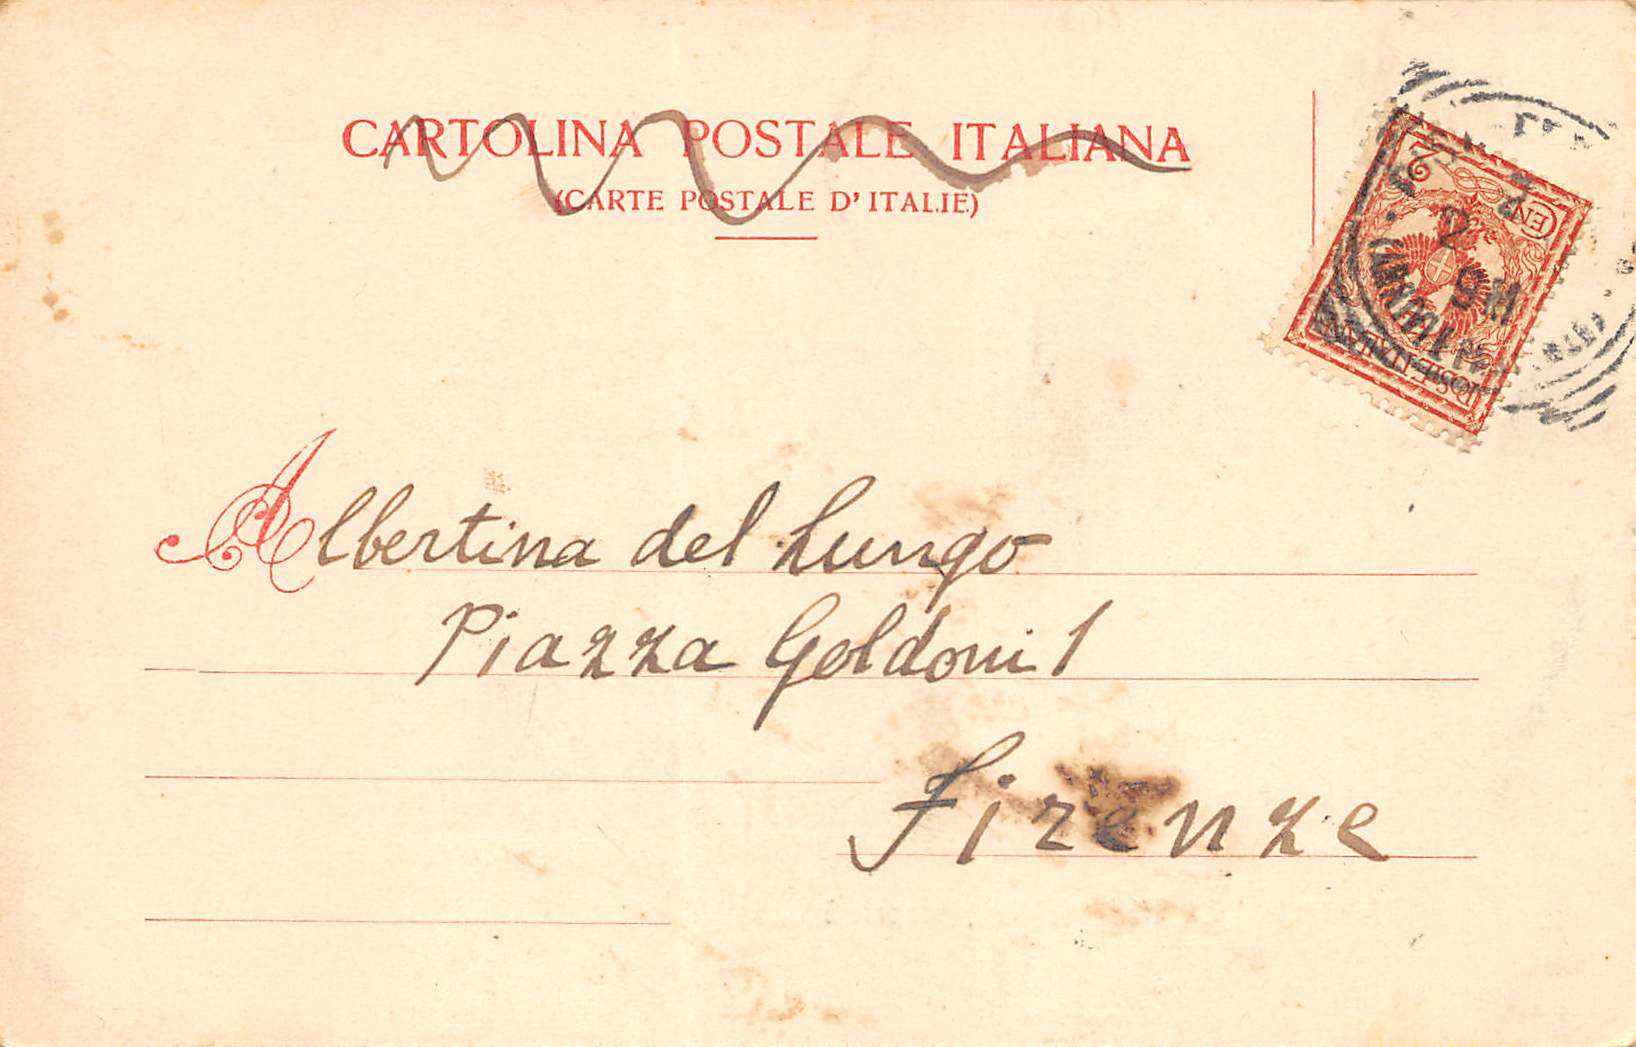 CARTOLINA POSTALE ITALIANA
(CARTE POSTALE D'ITALIE)
2
CEN
POSTE ITALIANE
Albertina del Lungo
Piazza Goldoni 1
Firenze